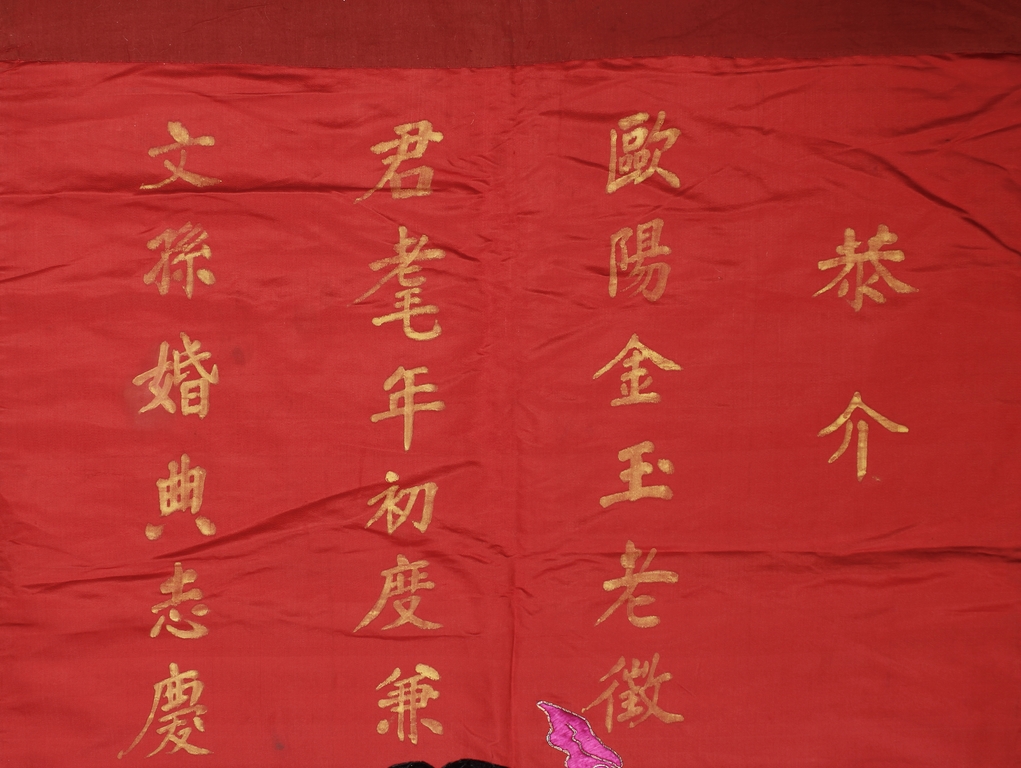 恭介
歐陽金玉老徵
君耄年初度兼
文孫婚典志慶